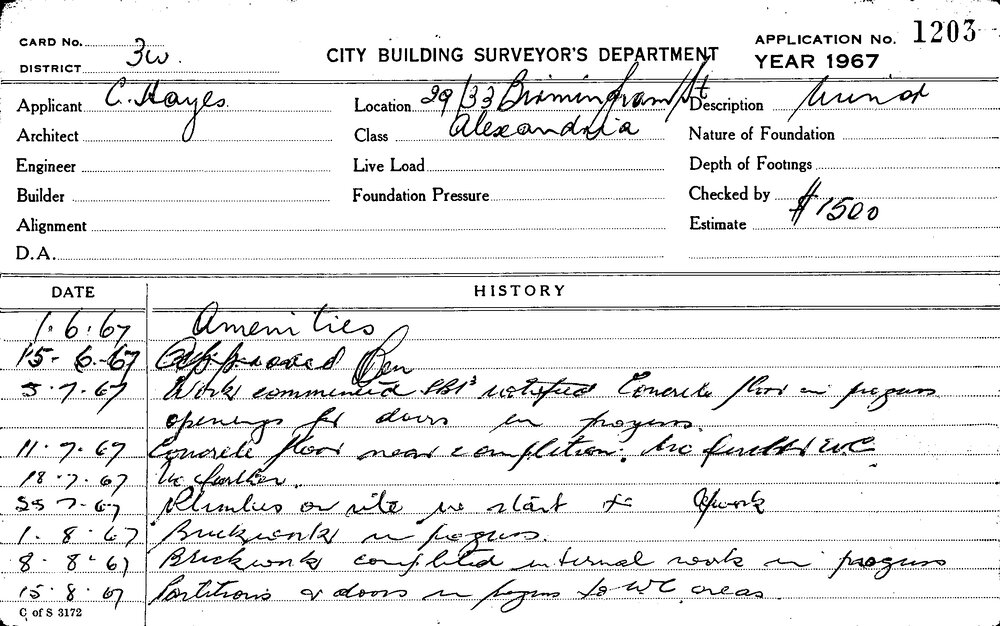 CARD No. 3W. CITY BUILDING SURVEYOR'S DEPARTMENT APPLICATION No. 1203
DISTRICT YEAR 1967
Applicant C. Hayes. Location 29/33 Birmingham St Description
Architect Class Alexandria Nature of Foundation
Engineer Live Load Depth of Footings
Builder Foundation Pressure Checked by
Alignment Estimate $1500
D.A.
DATE HISTORY
1.6.67 Amenities
15-6-67 Approved
5.7.67 Work commenced notified Concrete floor in progress
openings for doors in progress.
11.7.67 Concrete floor near completion. No further W.C.
18.7.67 No further.
25 7.67 Plumbers on site
1.8.67 Brickworks in progress.
8.8.67 Brickwork completed internal work in progress
15.8.67 Partitions & doors in progress to WC areas.
C of S 3172